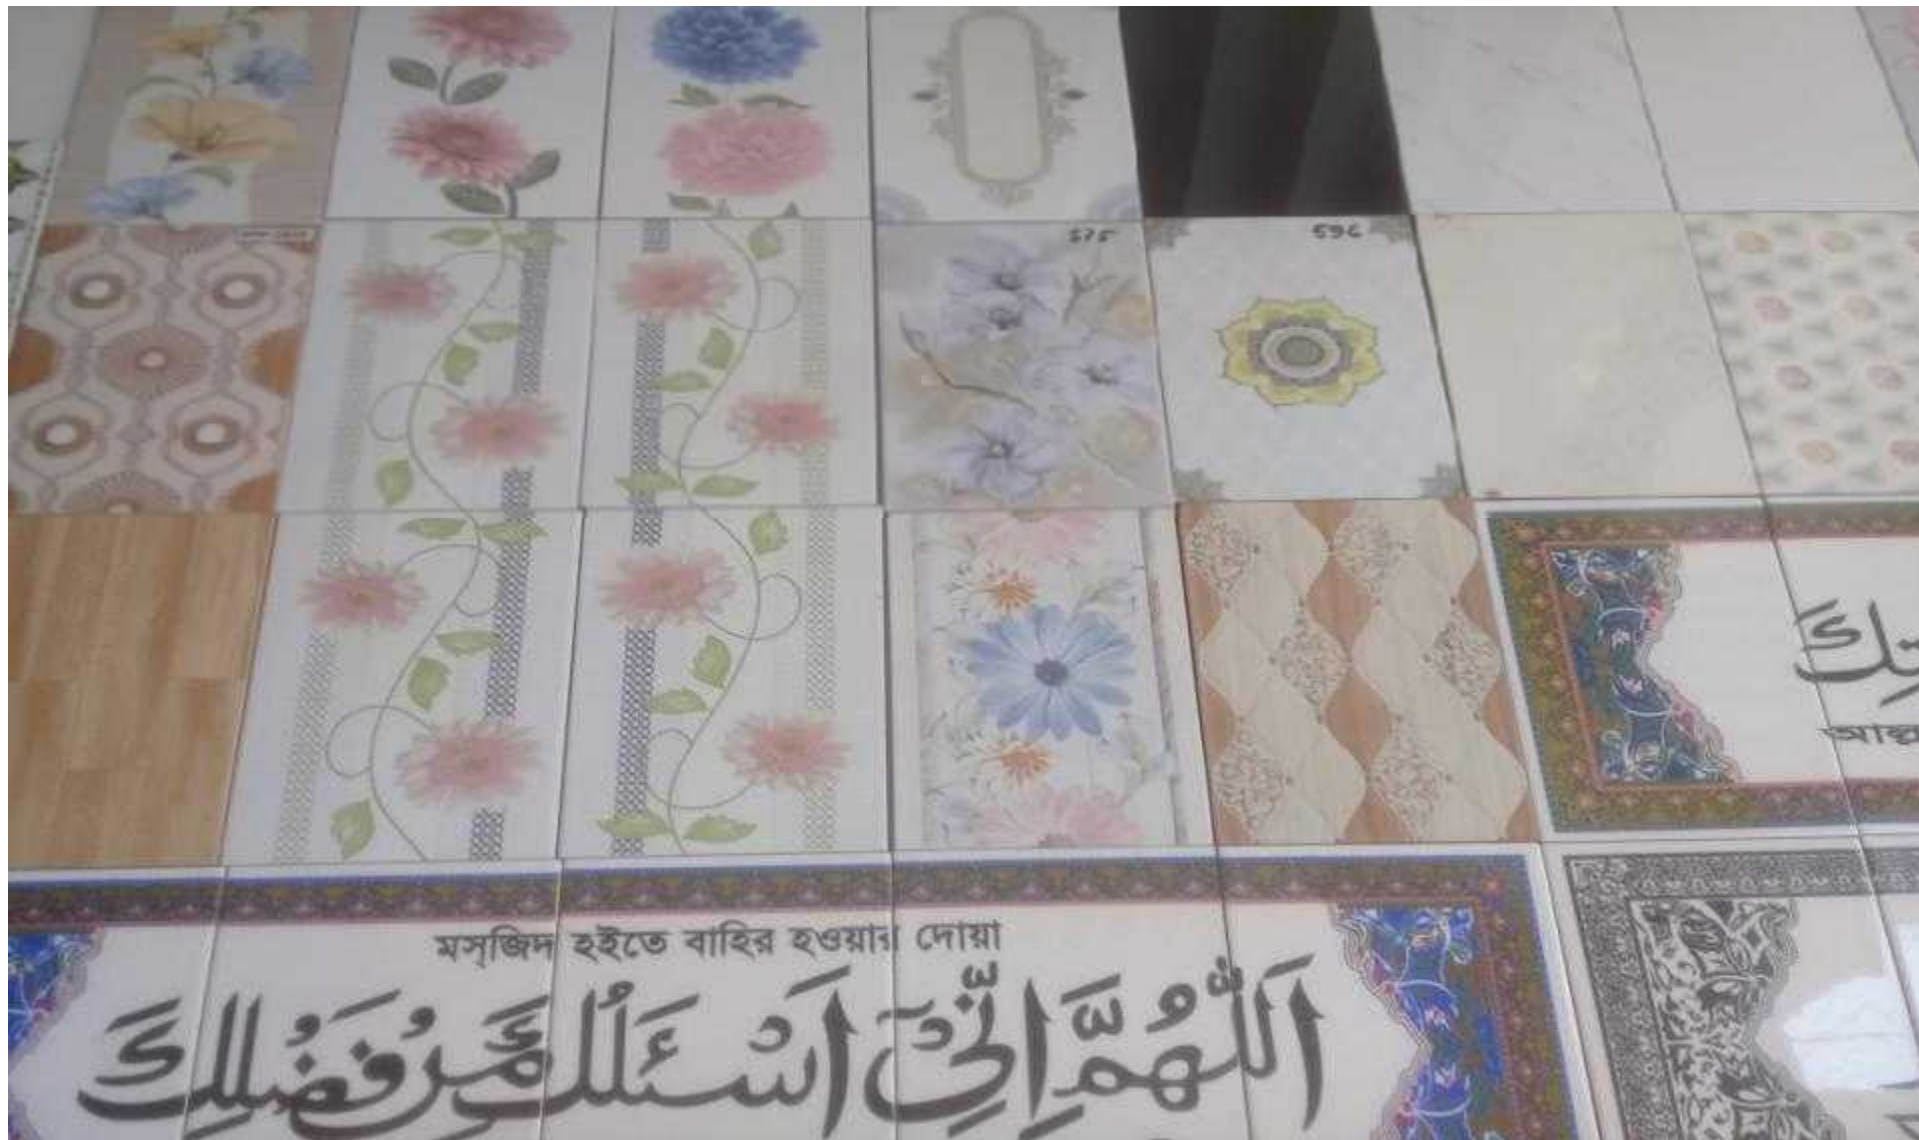 575
596
تِكَ
আল্ল
মসজিদ হইতে বাহির হওয়ার দোয়া
اَللّٰهُمَّ اِنِّيْٓ اَسْئَلُكَ مِنْ فَضْلِكَ